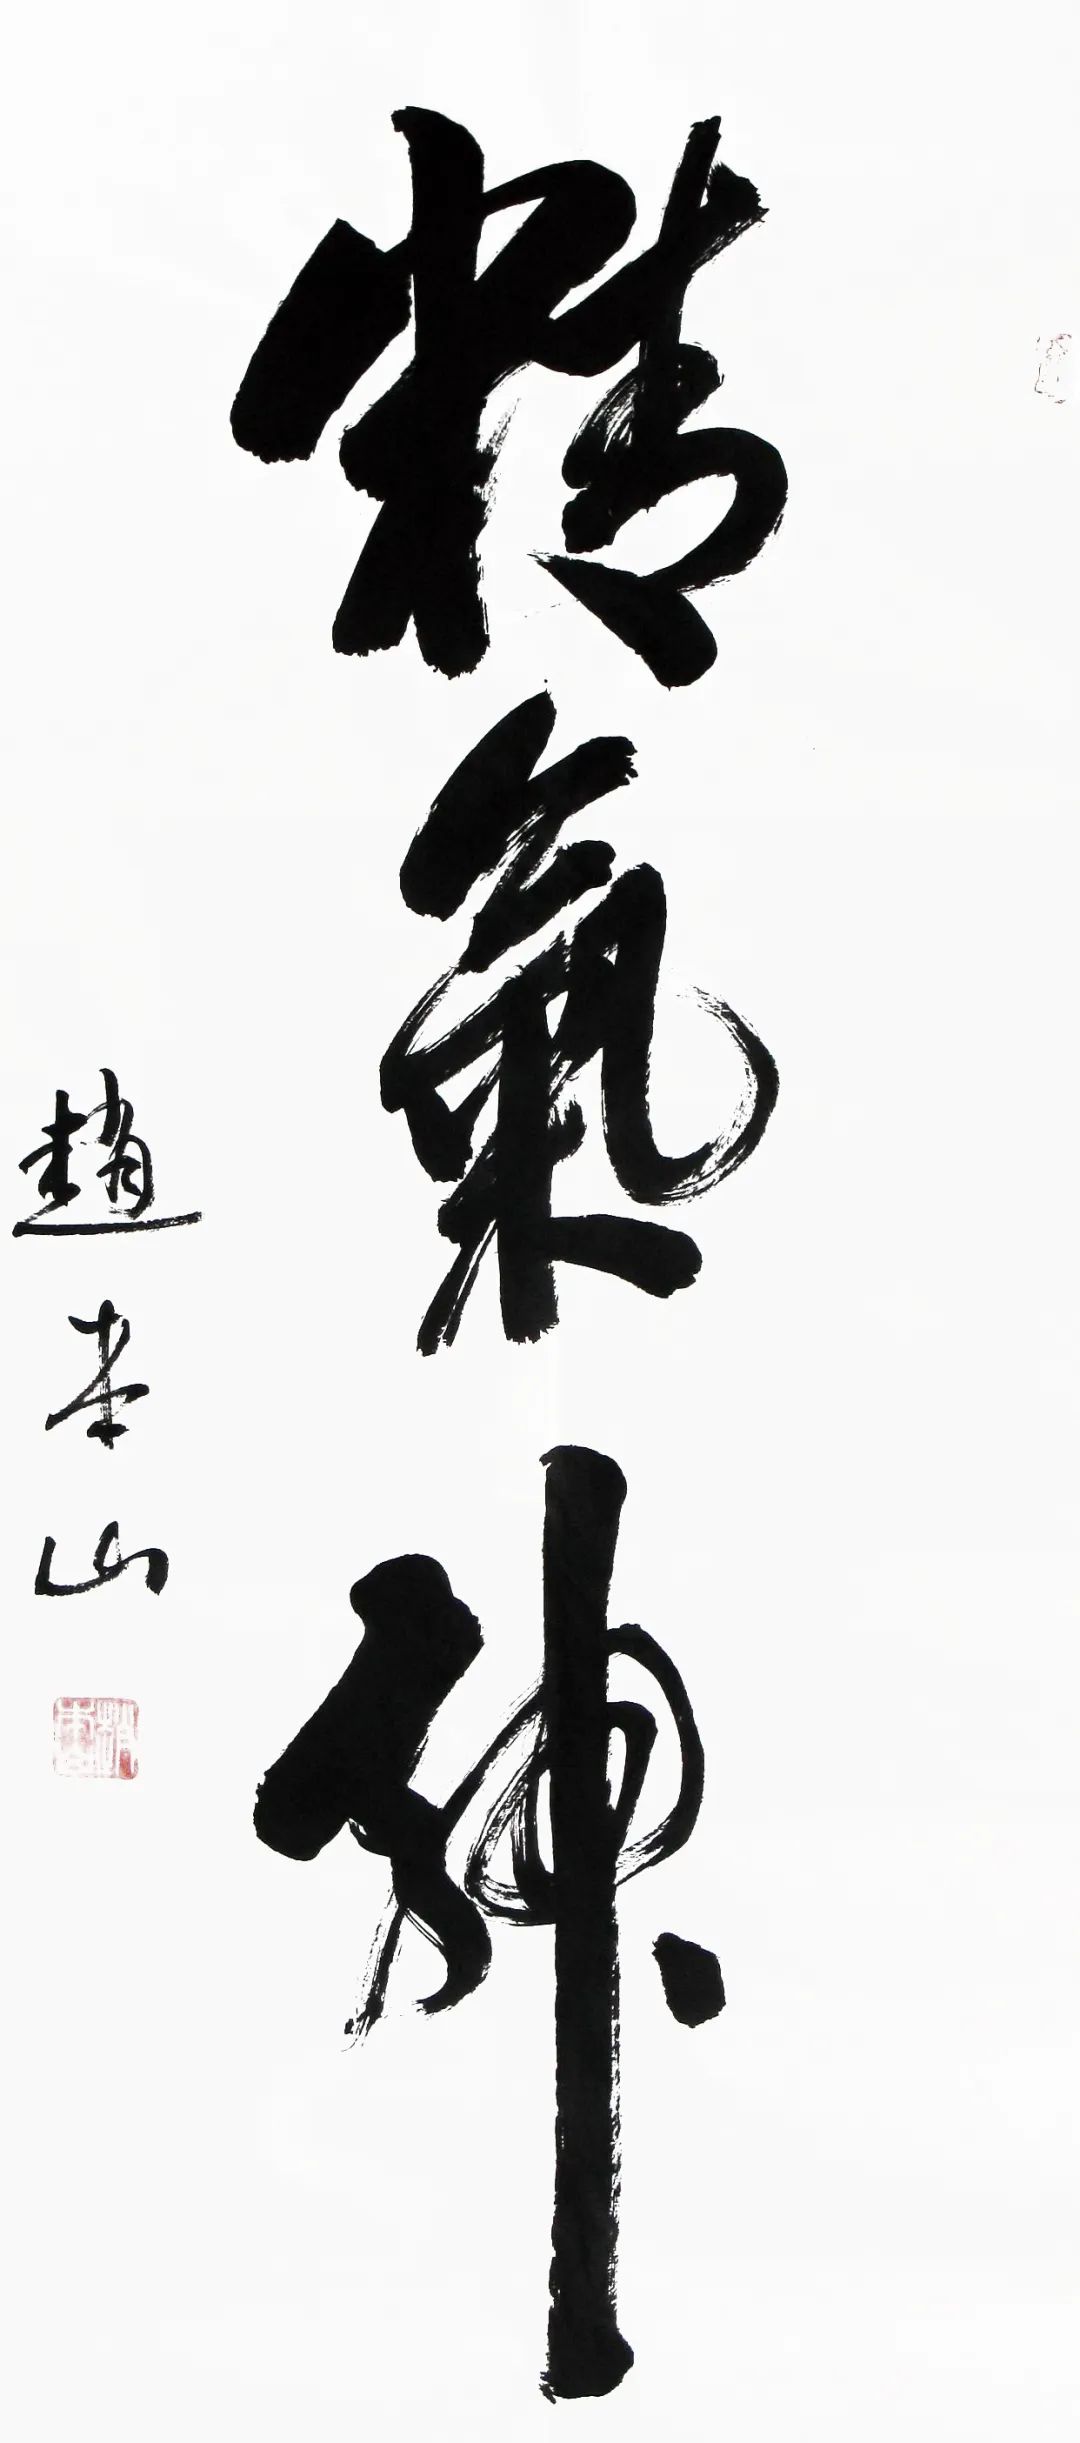 精氣神
趙本山